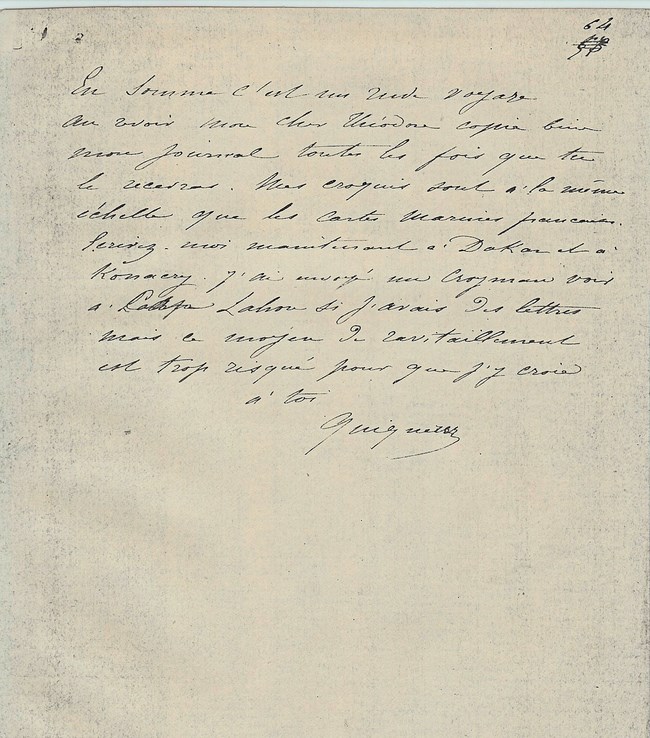 64
En somme c'est un rude voyage
au revoir mon cher Théodore copie bien
mon journal toutes les fois que tu
le recevras. Mes croquis sont à la même
échelle que les cartes marines françaises.
Ecrivez-moi maintenant à Dakar et à
Konacry. J'ai envoyé un Croyman voir
à Lahou si j'avais des lettres
mais ce moyen de ravitaillement
est trop risqué pour que j'y croie
à toi
Quiquerez